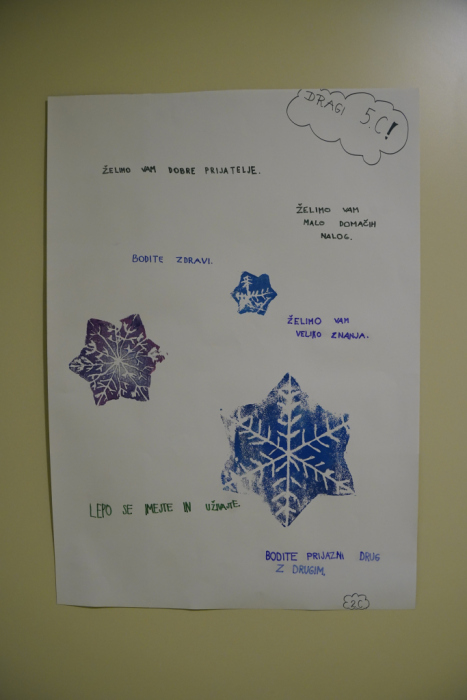 DRAGI 5.C!
ŽELIMO VAM DOBRE PRIJATELJE.
ŽELIMO VAM
MALO DOMAČIH
NALOG.
BODITE ZDRAVI.
ŽELIMO VAM
VELIKO ZNANJA.
LEPO SE IMEJTE IN UŽIVAJTE.
BODITE PRIJAZNI DRUG
Z DRUGIM.
2.C